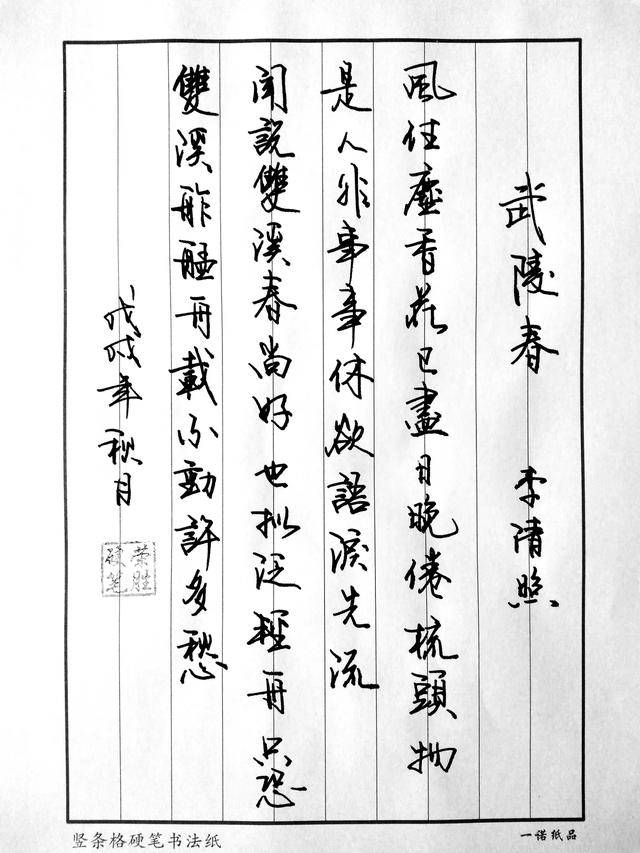 武陵春 李清照
風住塵香花已盡日晚倦梳頭物
是人非事事休欲語淚先流
聞說雙溪春尚好也擬泛輕舟只恐
雙溪舴艋舟載不動許多愁
戊戌年秋月
荣胜硬笔
竖条格硬笔书法纸
一诺纸品